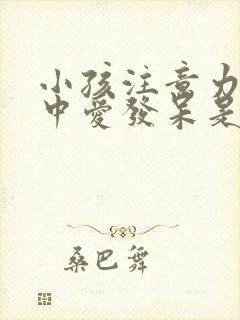 小孩注意力
中愛發呆是
桑巴舞